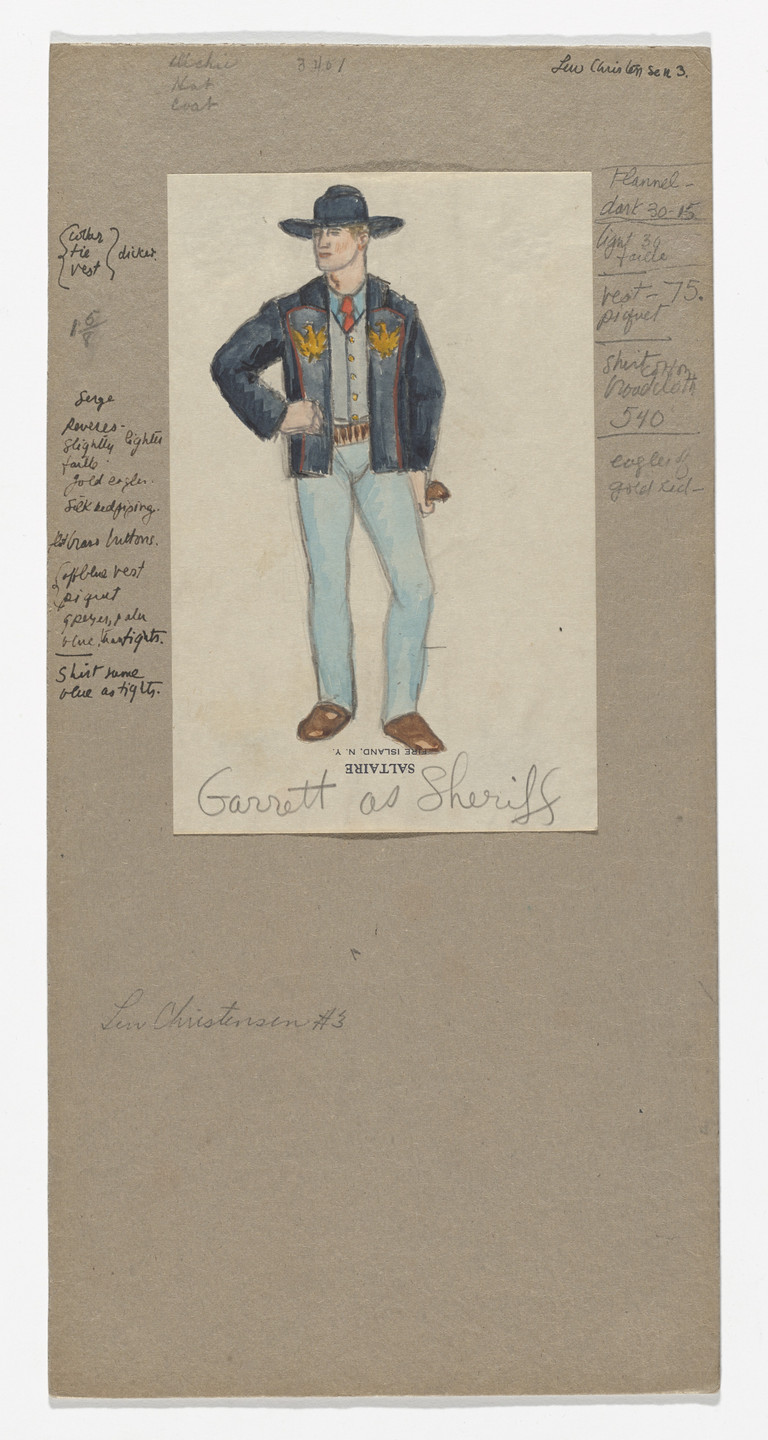 3401
Hat
Coat
Lew Christensen 3.
collar
tie
vest
dickie.
1 5/8
Serge
Reveres-
slightly lighter
faille.
gold eagles.
Silk red piping.
brass buttons.
off blue vest
piquet
greyer, paler
blue, than tights.
Shirt same
blue as tights.
Flannel-
dark 30-15
light 30
faille
vest - 75.
piquet
shirt cotton
broadcloth
540
eagles of
gold kid-
SALTAIRE
FIRE ISLAND, N. Y.
Garrett as Sheriff
Lew Christensen #3